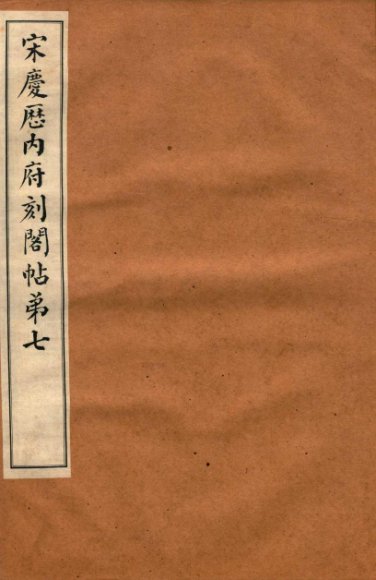 宋慶歷内府刻閣帖弟七